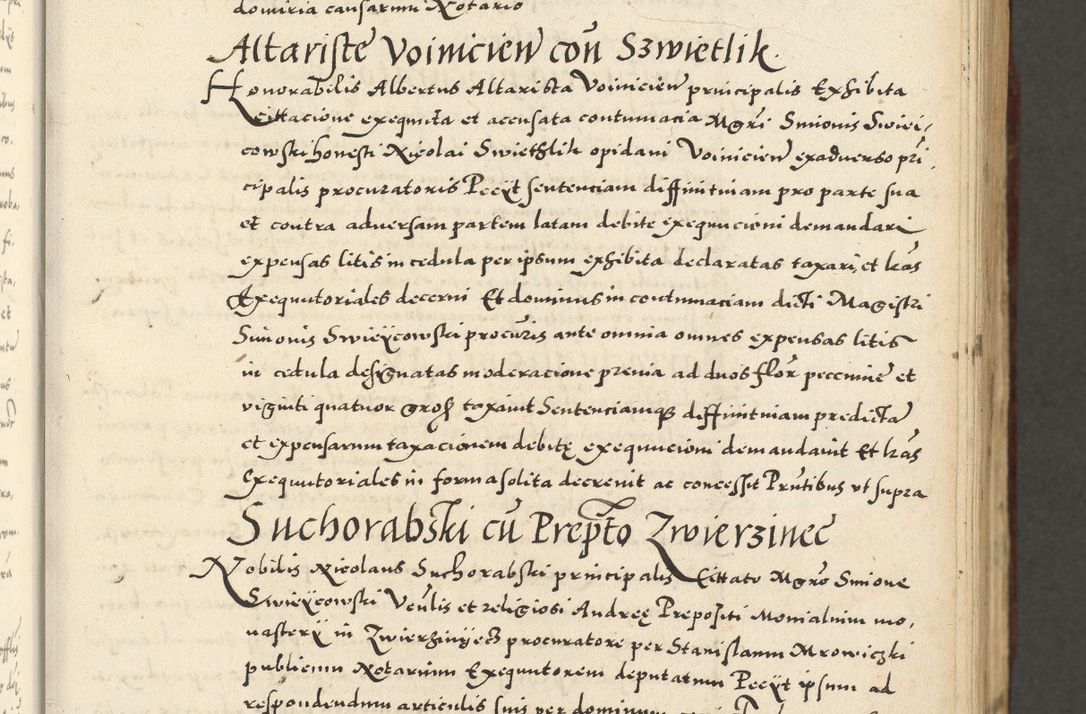 domiria causarum Notario
Altariste Voinicien con Szwietlik.
Honorabilis Albertus Altarista Voinicien principalis Exhibita
Cittacione exequuta et accusata contumacia Mgri Simonis Swiei,
cowski honesti Nicolai Swiethlik opidani Voinicien exadverso pri
cipalis procuratoris Peciit sententiam diffinitivam pro parte sua
et contra adversam partem latam debite exequucioni demandari
expensas litis in cedula per ipsum exhibita declaratas taxari, et lras
Exequutoriales decerni Et dominus in contumaciam dicti Magistri
Simonis Swieÿcowski procuris ante omnia omnes expensas litis
in cedula designatas moderacione previa ad duos flor peccunie et
viginti quatuor grosz taxavit Sentenciamq3 diffinitivam predicta
et expensarum taxacionem debitę exequucioni demandavit Et lras
Exequutoriales in forma solita decrevit ac concessit Prutibus vt supra
Suchorabski cu Prepto Zwierzinec
Nobilis Nicolaus Suchorabski principalis Cittato Mgro Simone
Swieÿcowski Venlis et religiosi Andreę Prepositi Monialium mo,
nasterÿ in Zwierzinÿecz procuratore per Stanislaum Mrowiczki
publicum Notarium Exequutorem deputatum Peciit ipsum ad
respondendum articulis suis per dominum